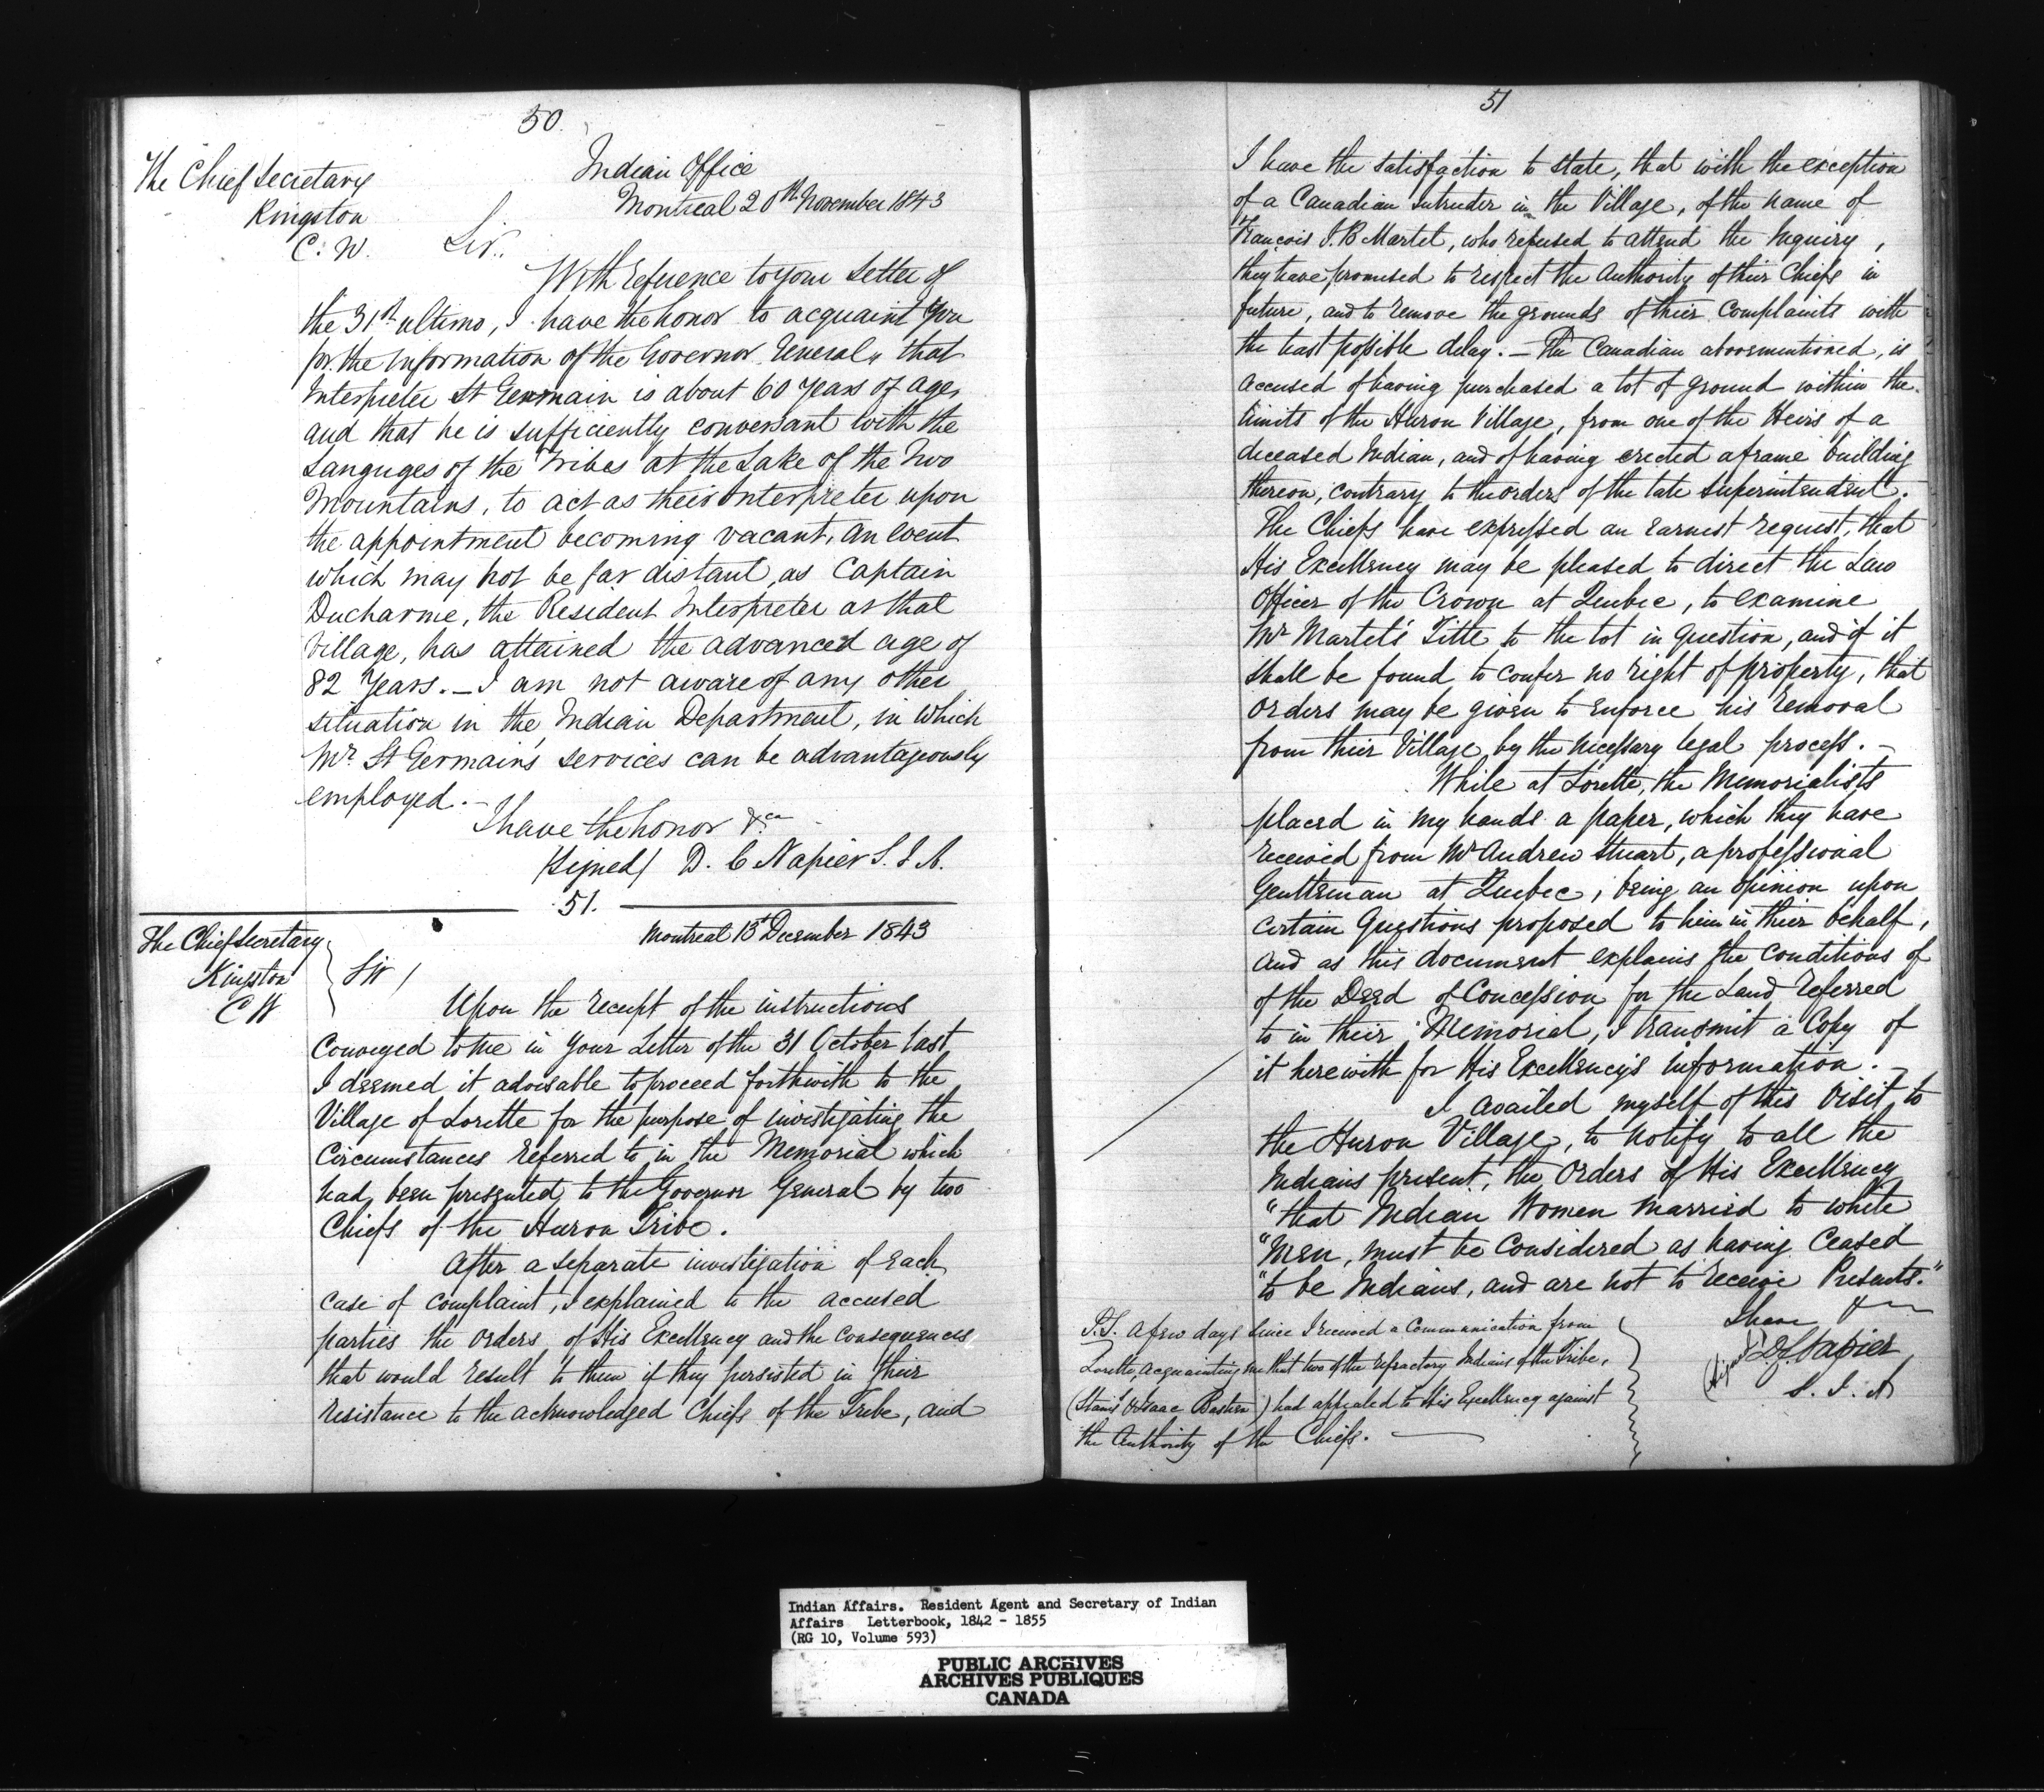 50.
The Chief Secretary
Kingston
C. W.
Indian Office
Montreal 20th November 1843
Sir.
With reference to your Letter of
the 31st ultimo, I have the honor to acquaint you
for the information of the Governor General, that
Interpreter St Germain is about 60 years of age,
and that he is sufficiently conversant with the
Languges of the Tribes at the Lake of the Two
Mountains, to act as their Interpreter upon
the appointment becoming vacant, an event
which may not be far distant, as Captain
Ducharme, the Resident Interpreter at that
Village, has attained the advanced age of
82 Years. — I am not aware of any other
situation in the Indian Department, in which
Mr St Germain's services can be advantageously
employed. —
I have the honor &ca
(Signed) D. C Napier S. I. A.
51.
The Chief Secretary
Kingston
C W
Montreal 13th December 1843
Sir /
Upon the receipt of the instructions
Conveyed to me in your Letter of the 31 October last
I deemed it advisable to proceed forthwith to the
Village of Lorette for the purpose of investigating the
Circumstances referred to in the Memorial which
had been presented to the Governor General by two
Chiefs of the Huron Tribe.
After a separate investigation of each
case of complaint, I explained to the accused
parties the orders of His Excellency and the consequences
that would result to them if they persisted in their
resistance to the acknowledged Chiefs of the Tribe, and
51
I have the satisfaction to state, that with the exception
of a Canadian intruder in the Village, of the name of
François J. B Martel, who refused to attend the Inquiry,
they have promised to respect the Authority of their Chiefs in
future, and to remove the grounds of their Complaints with
the least possible delay. — The Canadian abovementioned, is
accused of having purchased a lot of ground within the
limits of the Huron Village, from one of the Heirs of a
deceased Indian, and of having erected a frame building
thereon, contrary to the orders of the late Superintendent.
The Chiefs have expressed an earnest request, that
His Excellency may be pleased to direct the Law
Officer of the Crown at Quebec, to examine
Mr Martel's Title to the lot in question, and if it
shall be found to confer no right of property, that
orders may be given to enforce his removal
from their Village, by the necessary legal process. —
While at Lorette, the Memorialists
placed in my hands a paper, which they have
received from Mr Andrew Stuart, a professional
Gentleman at Quebec, being an opinion upon
certain Questions proposed to him in their behalf,
and as this document explains the conditions of
of the Deed of Concession for the Land referred
to in their Memorial, I transmit a Copy of
it herewith for His Excellency's information. —
I availed myself of this visit to
the Huron Village, to notify to all the
Indians present, the Orders of His Excellency
"that Indian Women married to white
"Men, must be considered as having ceased
"to be Indians, and are not to receive Presents."
I have &c
(Signed) D C Napier
S. I. A
P.S. A few days since I received a Communication from
Lorette, acquainting me that two of the refractory Indians of the Tribe,
(Stanis & Isaac Bastien) had appealed to His Excellency against
the Authority of the Chiefs. —
Indian Affairs. Resident Agent and Secretary of Indian
Affairs Letterbook, 1842 - 1855
(RG 10, Volume 593)
PUBLIC ARCHIVES
ARCHIVES PUBLIQUES
CANADA